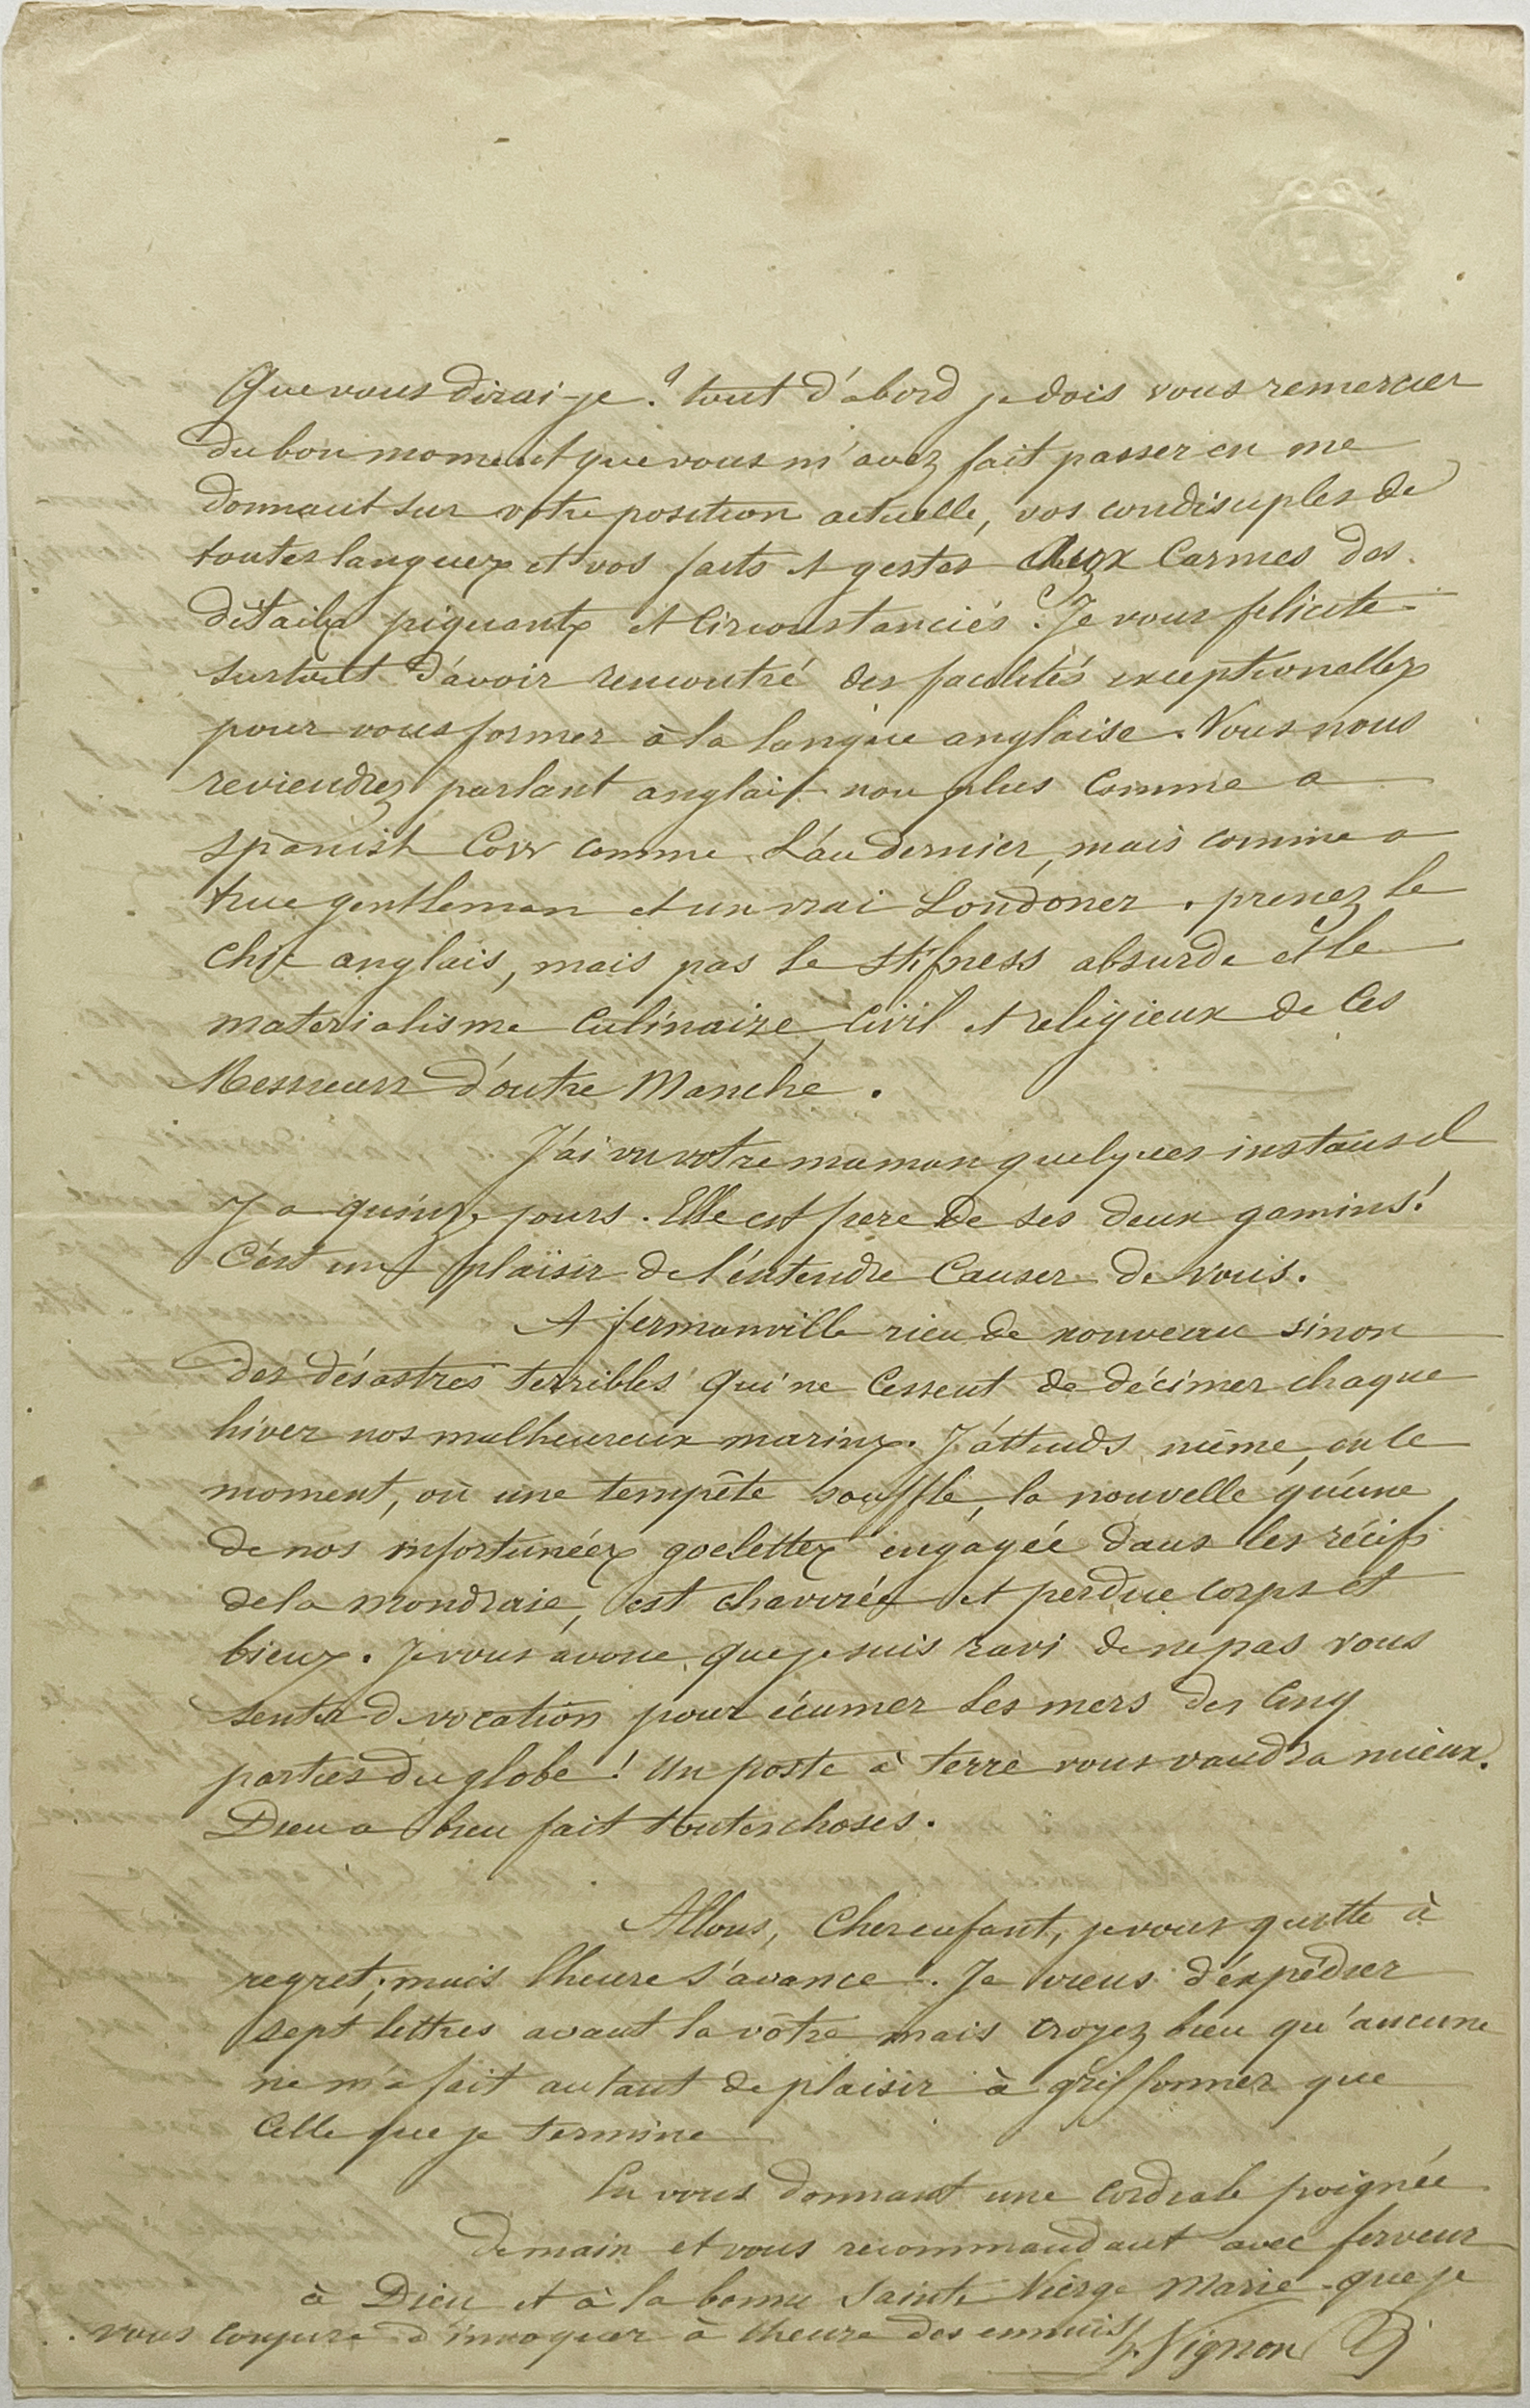 Que vous dirai-je ? tout d'abord je dois vous remercier
du bon moment que vous m'avez fait passer en me
donnant sur votre position actuelle, vos condisciples de
toutes langues et vos faits et gestes aux Carmes des
détails piquants et circonstanciés. Je vous felicite
surtout d'avoir rencontré des facilités exceptionelles
pour vous former à la langue anglaise. Vous nous
reviendrez parlant anglais non plus comme a
spanish Cow comme l'an dernier, mais comme a
true gentleman et un vrai Londoner. prenez le
chic anglais, mais pas le stifness absurde et le
materialisme culinaire, civil et religieux de ces
Messieurs d'outre Manche.
J'ai vu votre maman quelques instans il
y a quinze jours. Elle est fiere de ses deux gamins!
C'est un plaisir de l'entendre causer de vous.
A fermanville rien de nouveau sinon
des désastres terribles qui ne cessent de décimer chaque
hiver nos malheureux marins. J'attends même, en ce
moment, où une tempête souffle, la nouvelle qu'une
de nos infortunées goelettes engagée dans les récifs
de la mondraie, est chavirée et perdue corps et
biens. Je vous avoue que je suis ravi de ne pas vous
sentir de vocation pour écumer les mers des cinq
parties du globe ! Un poste à terre vous vaudra mieux.
Dieu a bien fait toutes choses.
Allons, Cher enfant, je vous quitte à
regret; mais l'heure s'avance. Je viens d'expédier
sept lettres avant la vôtre mais croyez bien qu'aucune
ne m'a fait autant de plaisir à griffonner que
celle que je termine
En vous donnant une cordiale poignée
de main et vous recommandant avec ferveur
à Dieu et à la bonne Sainte Vierge Marie que je
vous conjure d'invoquer à l'heure des ennuis Vignon